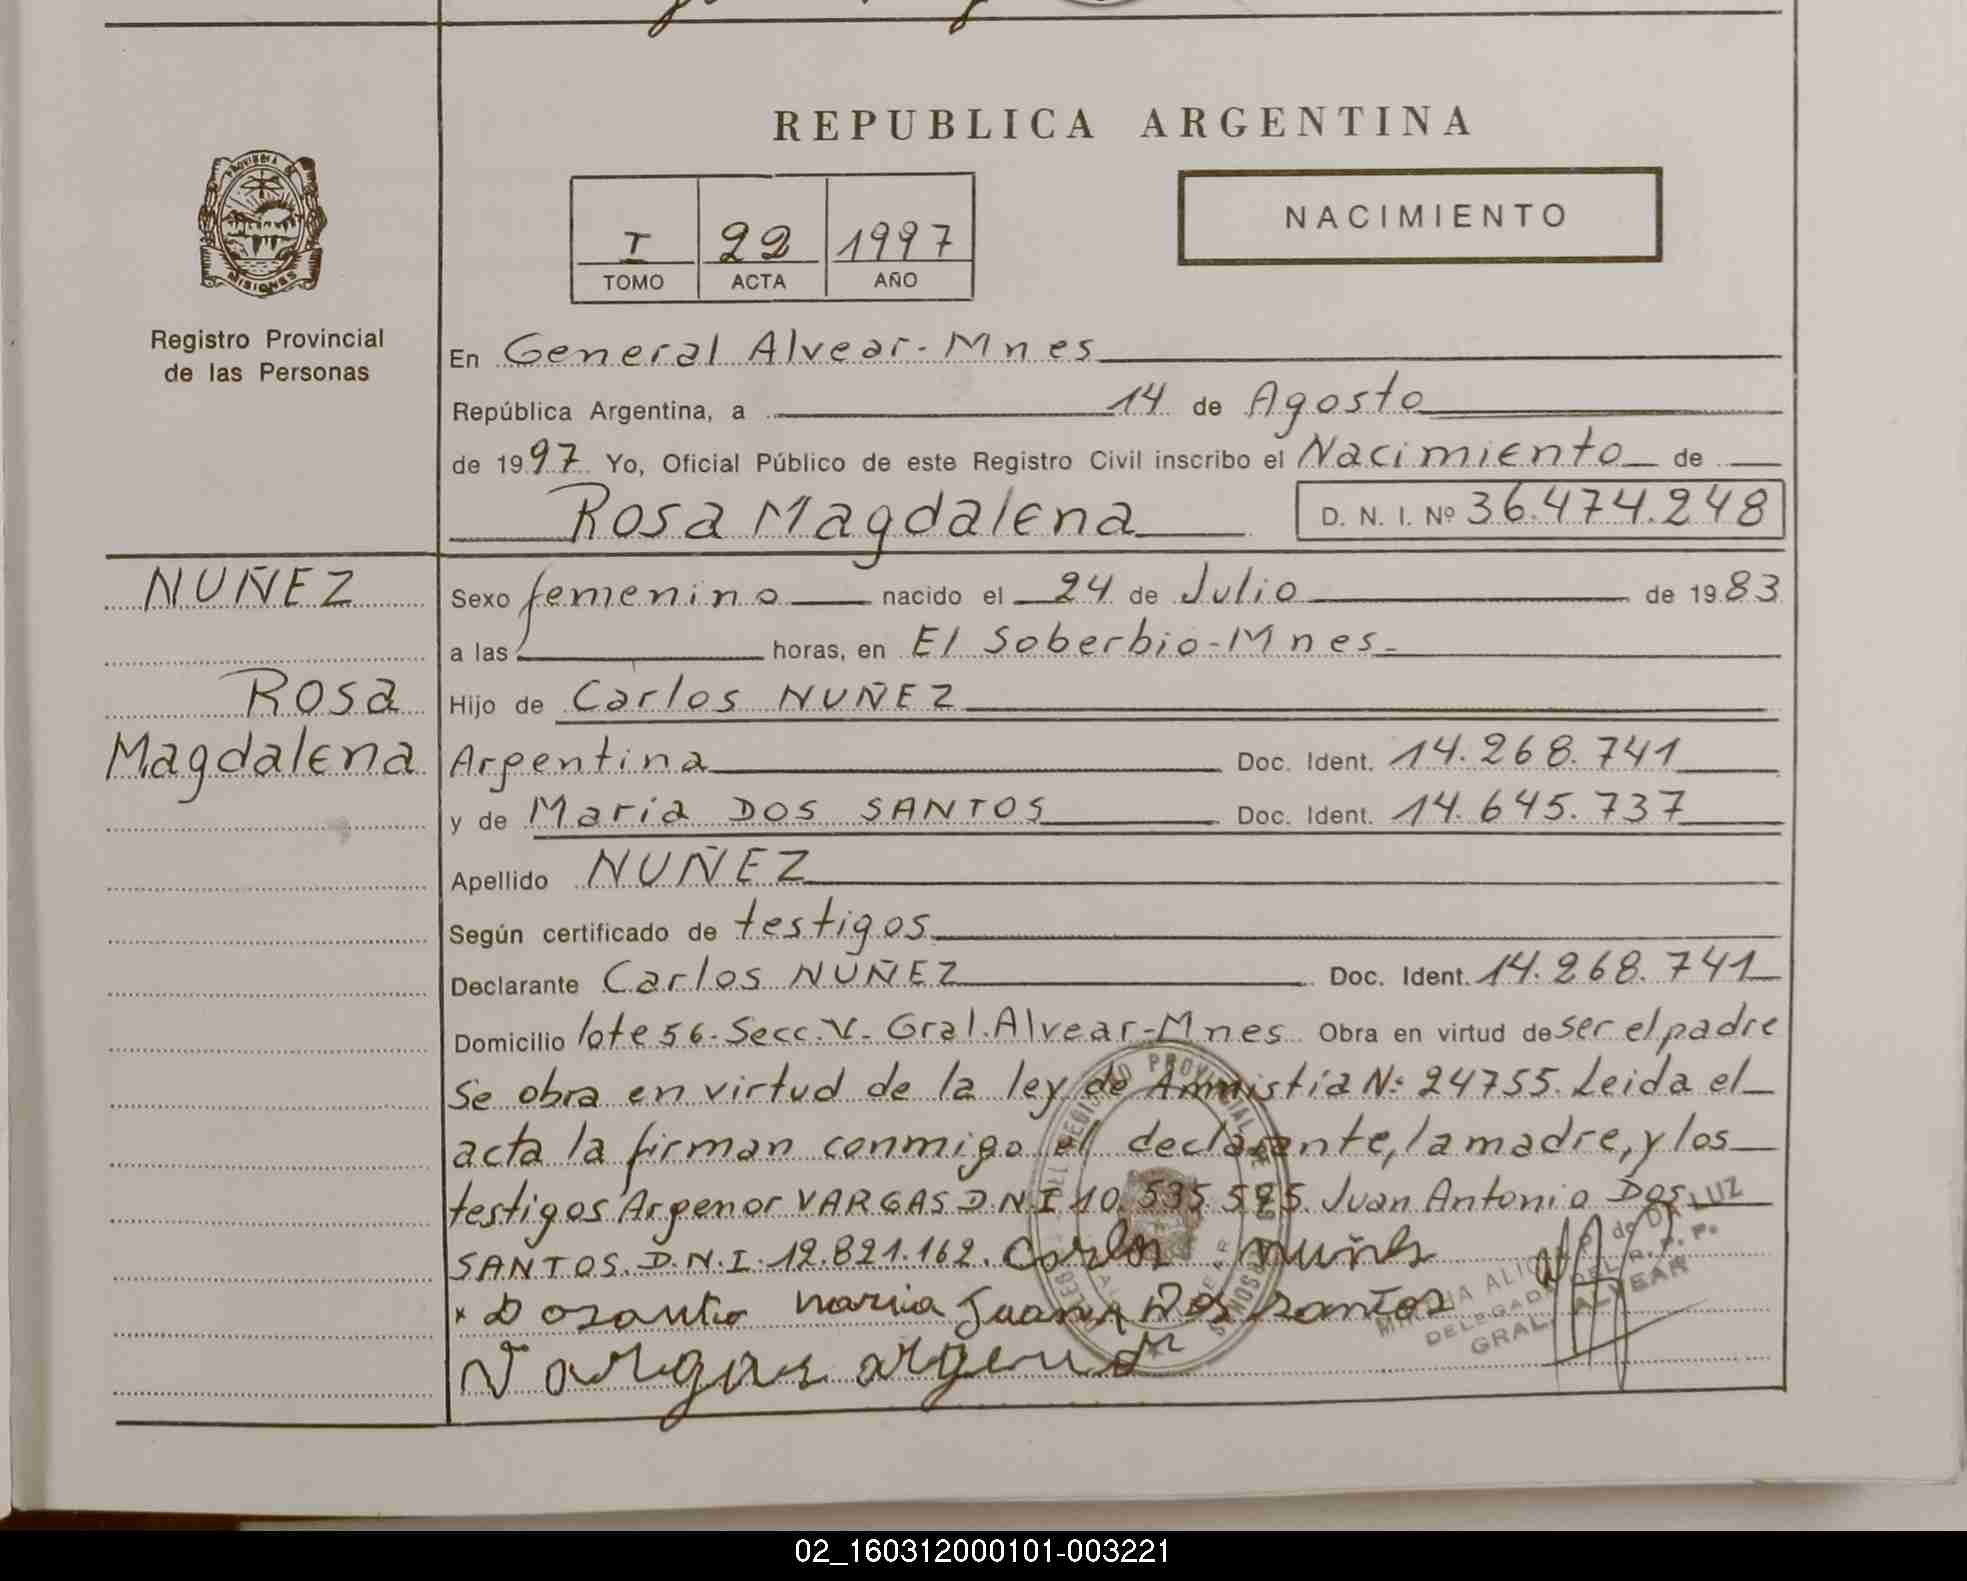 REPUBLICA ARGENTINA
PROVINCIA DE
MISIONES
Registro Provincial
de las Personas
I 22 1997
TOMO ACTA AÑO
NACIMIENTO
En General Alvear-Mnes
República Argentina, a 14 de Agosto
de 1997 Yo, Oficial Público de este Registro Civil inscribo el Nacimiento de
Rosa Magdalena D. N. I. Nº 36.474.248
NUÑEZ
Rosa
Magdalena
Sexo femenino nacido el 24 de Julio de 1983
a las horas, en El Soberbio-Mnes-
Hijo de Carlos NUÑEZ
Argentina Doc. Ident. 14.268.741
y de Maria DOS SANTOS Doc. Ident. 14.645.737
Apellido NUÑEZ
Según certificado de testigos
Declarante Carlos NUÑEZ Doc. Ident. 14.268.741
Domicilio lote 56-Secc.V-Gral.Alvear-Mnes Obra en virtud de ser el padre
Se obra en virtud de la ley de Amnistía Nº 24755. Leida el
acta la firman conmigo el declarante, la madre, y los
testigos Argenor VARGAS D.N.I 10.535.595. Juan Antonio Dos
SANTOS. D.N.I. 12.821.162. Carlos nuñes
x Dosantos maria Juana Dos santos
Vargas argenor
REGISTRO PROVINCIAL DE
PERSONAS
ALICIA P. de DA LUZ
DELEGADA DEL R. P. P.
GRAL. ALVEAR
02_160312000101-003221